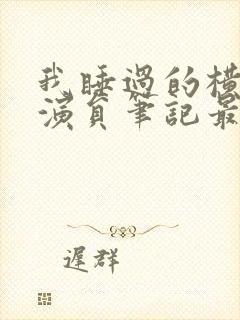 我睡過的橫
演員筆記最
遲群